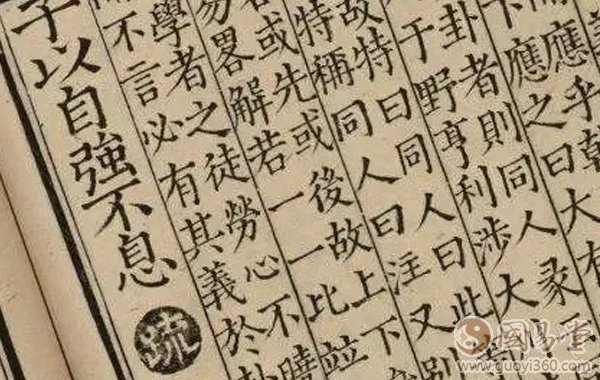 而應乎乾
下應之曰大有
卦者則同人彖
于野亨利涉大
故特曰同人曰此
特稱同人曰汪又别
者或先或後故上下
易畧解若一一比並
學者之徒勞心不曉
不言必有其義於卦
子以自強不息
疏
國易堂
www.guoyi360.com